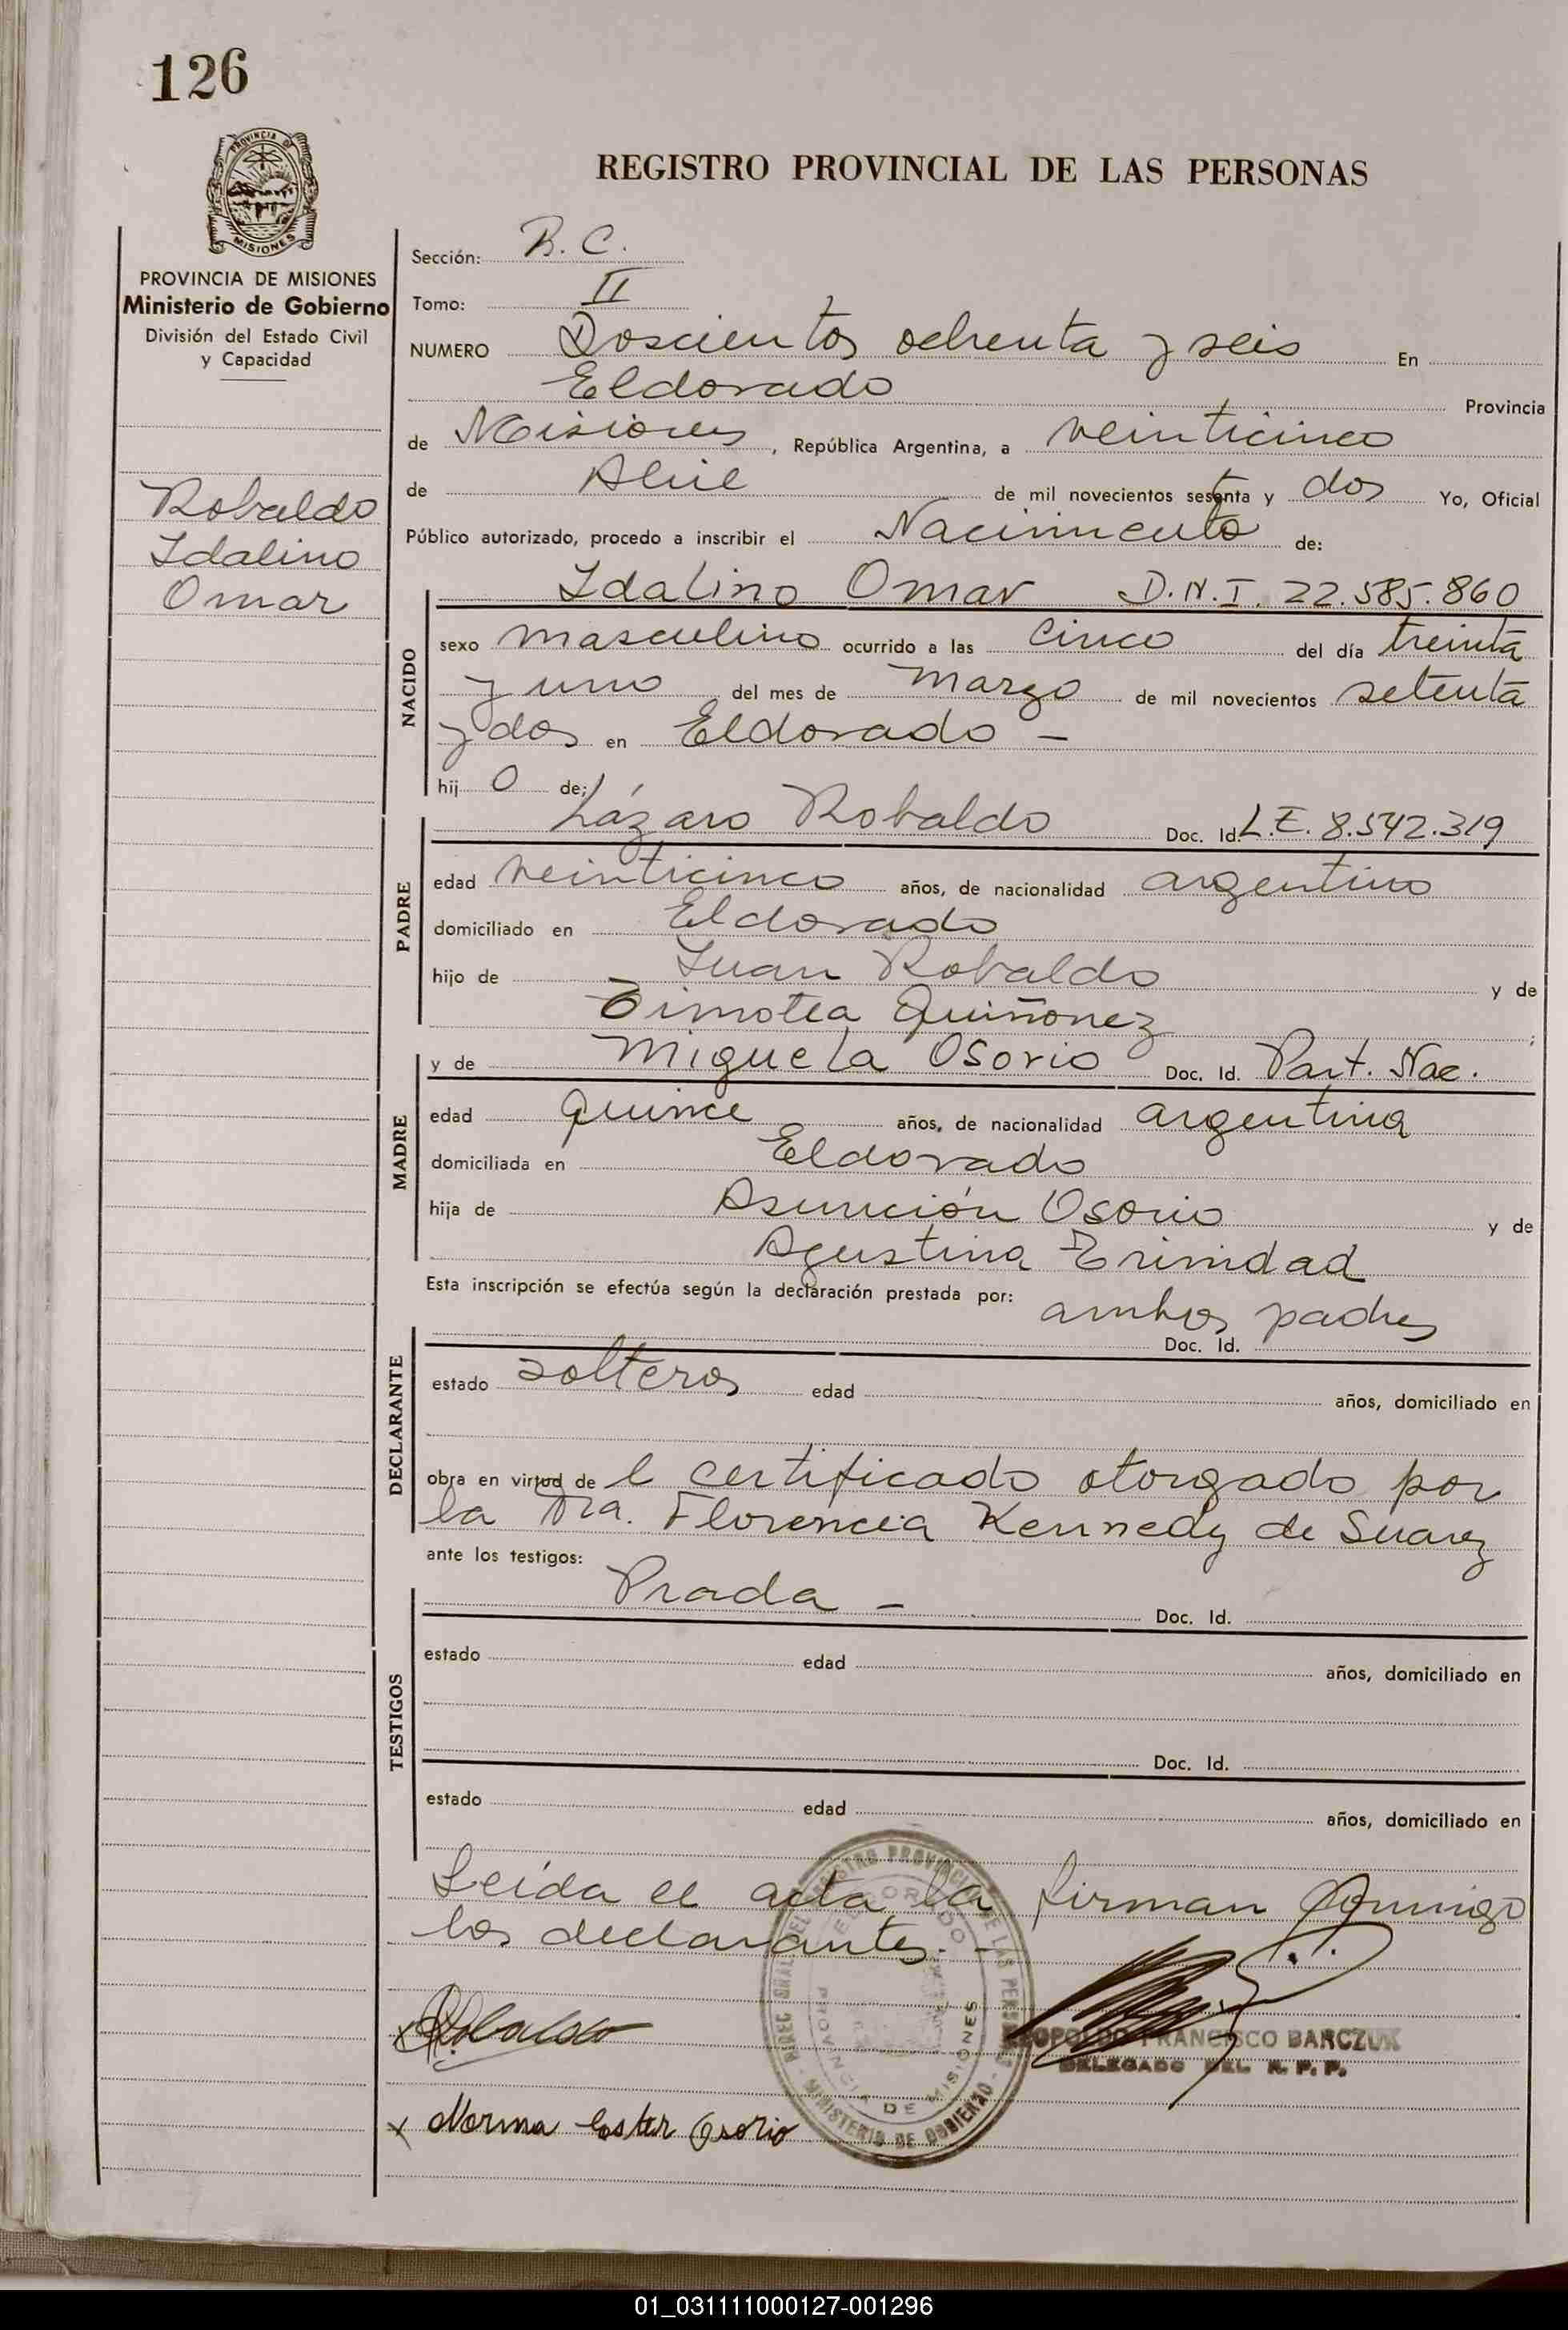 126
PROVINCIA DE
MISIONES
REGISTRO PROVINCIAL DE LAS PERSONAS
PROVINCIA DE MISIONES
Ministerio de Gobierno
División del Estado Civil
y Capacidad
Robaldo
Idalino
Omar
Sección: R. C.
Tomo: II
NUMERO Doscientos ochenta y seis En
Eldorado Provincia
de Misiones, República Argentina, a veinticinco
de Abril de mil novecientos setenta y dos Yo, Oficial
Público autorizado, procedo a inscribir el Nacimiento de:
NACIDO
Idalino Omar D.N.I. 22.585.860
sexo masculino ocurrido a las cinco del día treinta
y uno del mes de marzo de mil novecientos setenta
y dos en Eldorado -
hij o de:
PADRE
Lázaro Robaldo Doc. Id. L.E. 8.542.319
edad veinticinco años, de nacionalidad argentino
domiciliado en Eldorado
hijo de Juan Robaldo y de
Timotea Quiñonez ;
MADRE
y de Miguela Osorio Doc. Id. Part. Nac.
edad quince años, de nacionalidad argentina
domiciliada en Eldorado
hija de Asunción Osorio y de
Agustina Trinidad
Esta inscripción se efectúa según la declaración prestada por: ambos padres
DECLARANTE
Doc. Id.
estado solteros edad años, domiciliado en
obra en virtud de l certificado otorgado por
la Dra. Florencia Kennedy de Suarez
ante los testigos:
TESTIGOS
Prada - Doc. Id.
estado edad años, domiciliado en
Doc. Id.
estado edad años, domiciliado en
Leída el acta, la firman conmigo
los declarantes. -
x Robaldo
LEOPOLDO FRANCISCO BARCZUK
DELEGADO DEL R. P. P.
x Norma Ester Osorio
ELDORADO
PROVINCIA DE MISIONES
MINISTERIO DE GOBIERNO
01_031111000127-001296